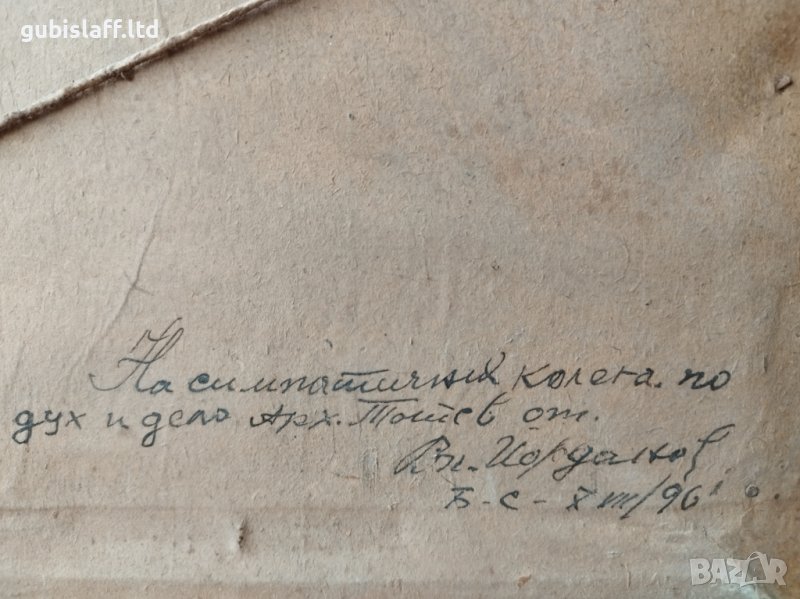 gubislaff.ltd
На симпатичния колега по
дух и дело Арх. Тотев от.
Вл. Йорданов
Б-с - /96
BAZAR